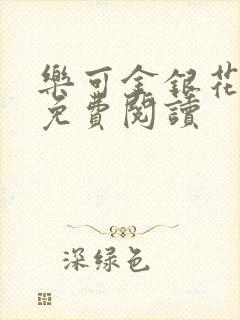 樂可金銀花
免費閱讀
深绿色